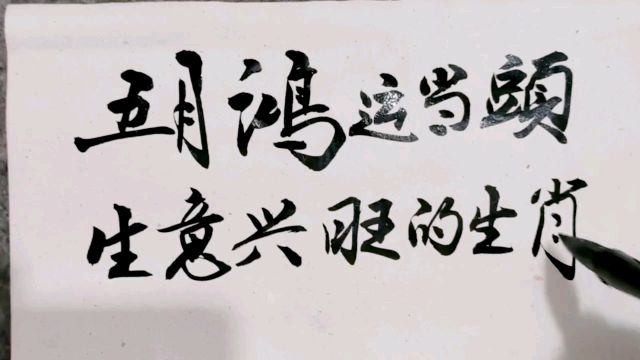 五月鸿运当頭
生意兴旺的生肖